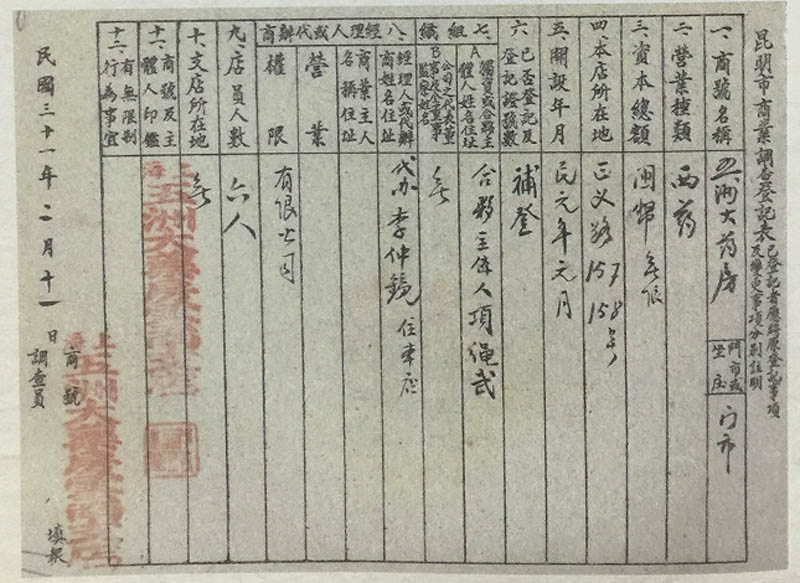 昆明市商業調查登記表 已登記者應將原登記事項及變更事項分别註明
一、商號名稱 五洲大药房 門市或坐庄 门市
二、營業種類 西药
三、資本總額 闽幣 无限
四、本店所在地 正义路157 158号
五、開設年月 民元年元月
六、已否登記及登記證號數 補登
七、組織
A 獨資或合夥主體人姓名住址 合夥主体人項绳武
B 公司之代表董事及主董事監察姓名 无
八、經理人或代辦商
經理人或代辦商姓名住址 代办 李仲鏡 住本店
商業主人名稱住址
營業權限 有限公司
九、店員人數 六人
十、支店所在地 无
十一、商號及主體人印鑑
十二、有無限制行為事宜
民國三十一年二月十一日 商號 調查員 填報